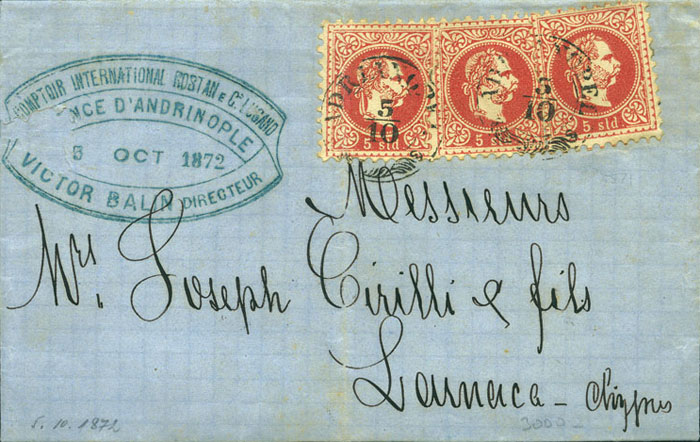 COMPTOIR INTERNATIONAL ROSTAN & Cº LUGANO
NCE D'ANDRINOPLE
5 OCT 1872
VICTOR BALIN DIRECTEUR
5 sld
5 sld
5 sld
5/10
5/10
Messieurs
Mrs. Joseph Cirilli & fils
Larnaca - Chypre
5. 10. 1872
3000 -